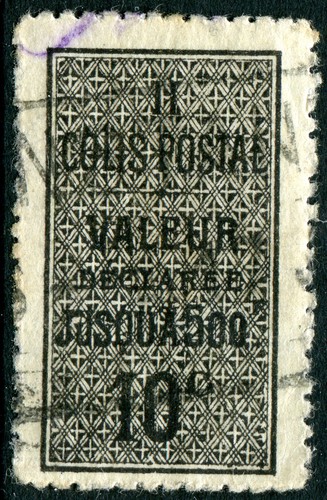 II
COLIS POSTAL
VALEUR
DECLARÉE
JUSQU'À 500F
10c